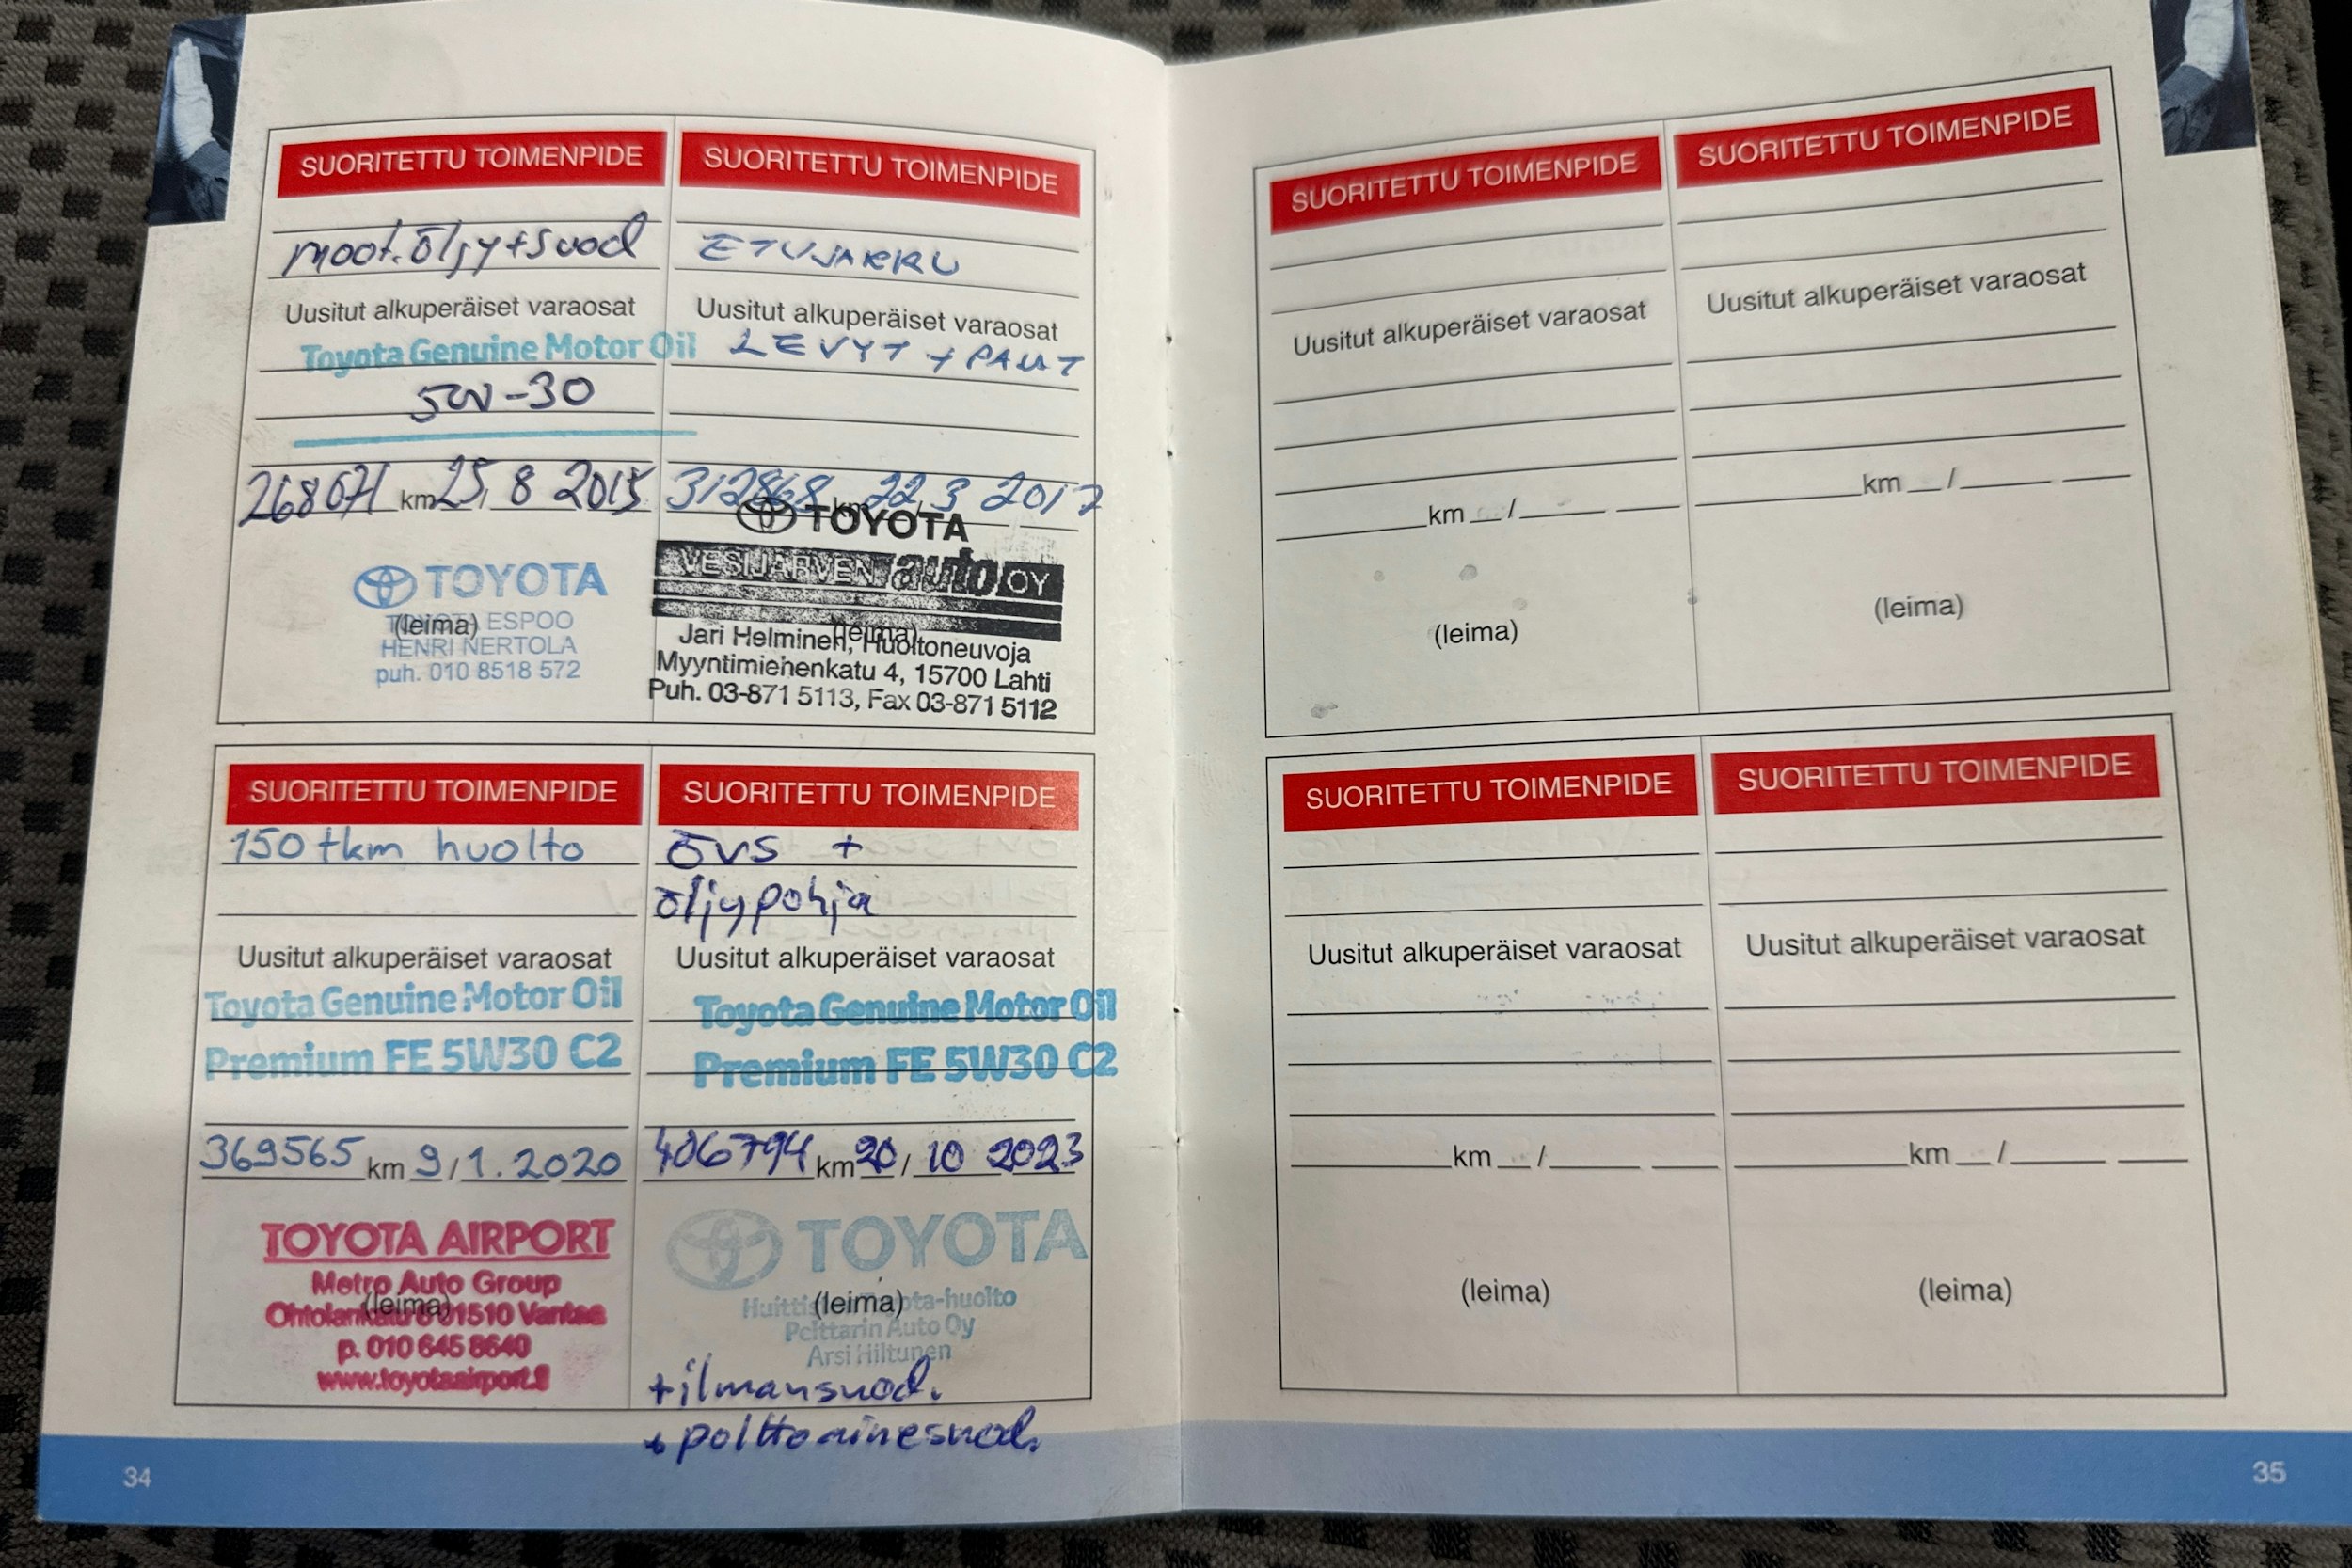 SUORITETTU TOIMENPIDE
moot.öljy+suod
Uusitut alkuperäiset varaosat
Toyota Genuine Motor Oil
5W-30
268071 km 25, 8 2015
TOYOTA
ESPOO
(leima)
HENRI NERTOLA
puh. 010 8518 572
SUORITETTU TOIMENPIDE
ETUJARRU
Uusitut alkuperäiset varaosat
LEVYT + PALAT
312868 km 22, 3 2017
TOYOTA
VESIJÄRVEN auto OY
(leima)
Jari Helminen, Huoltoneuvoja
Myyntimiehenkatu 4, 15700 Lahti
Puh. 03-871 5113, Fax 03-871 5112
SUORITETTU TOIMENPIDE
150 tkm huolto
Uusitut alkuperäiset varaosat
Toyota Genuine Motor Oil
Premium FE 5W30 C2
369565 km 9/1.2020
TOYOTA AIRPORT
Metro Auto Group
(leima)
01510 Vantaa
p. 010 645 8640
www.toyotaairport.fi
SUORITETTU TOIMENPIDE
ÖVS +
öljypohja
Uusitut alkuperäiset varaosat
Toyota Genuine Motor Oil
Premium FE 5W30 C2
406794 km 20/10 2023
TOYOTA
(leima)
Pelttarin Auto Oy
Arsi Hiltunen
+ilmansuod.
+polttoainesuod.
34
SUORITETTU TOIMENPIDE
Uusitut alkuperäiset varaosat
km /
(leima)
SUORITETTU TOIMENPIDE
Uusitut alkuperäiset varaosat
km /
(leima)
SUORITETTU TOIMENPIDE
Uusitut alkuperäiset varaosat
km /
(leima)
SUORITETTU TOIMENPIDE
Uusitut alkuperäiset varaosat
km /
(leima)
35